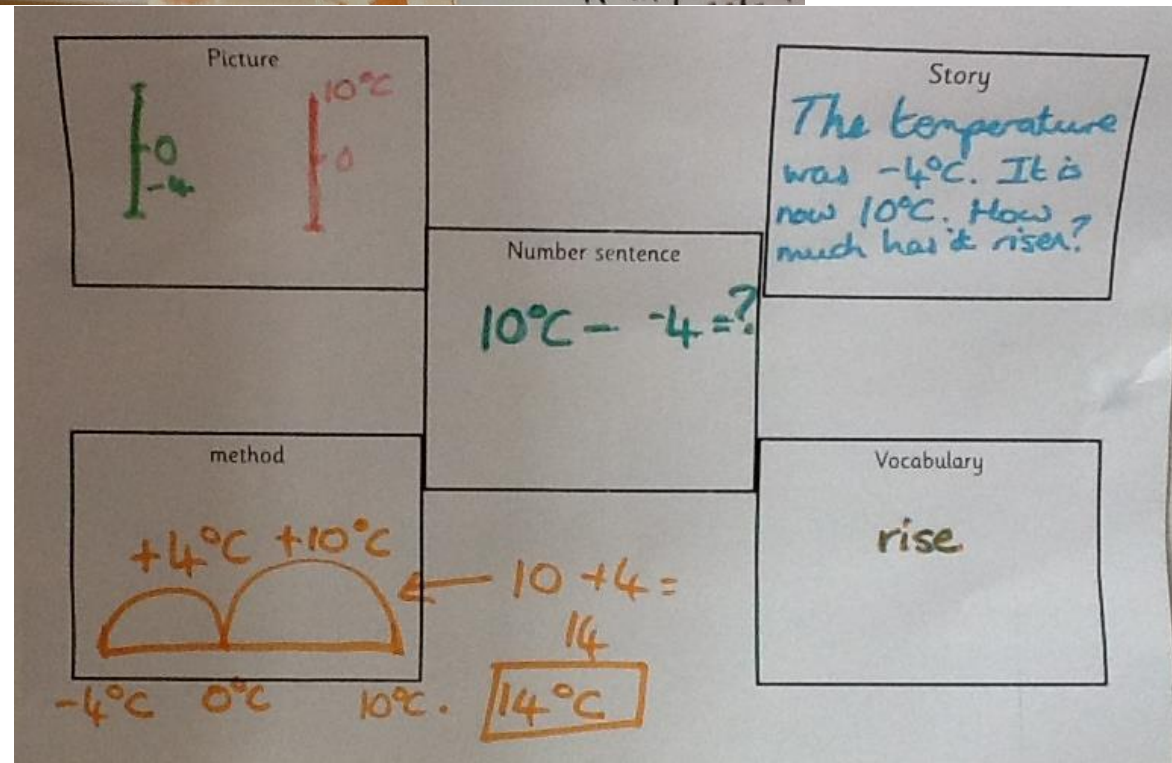 Picture
10°C
0
0
-4
Story
The temperature
was -4°C. It is
now 10°C. How
much has it risen?
Number sentence
10°C - -4 = ?
method
+4°C +10°C
-4°C 0°C 10°C.
10 + 4 =
14
14°C
Vocabulary
rise